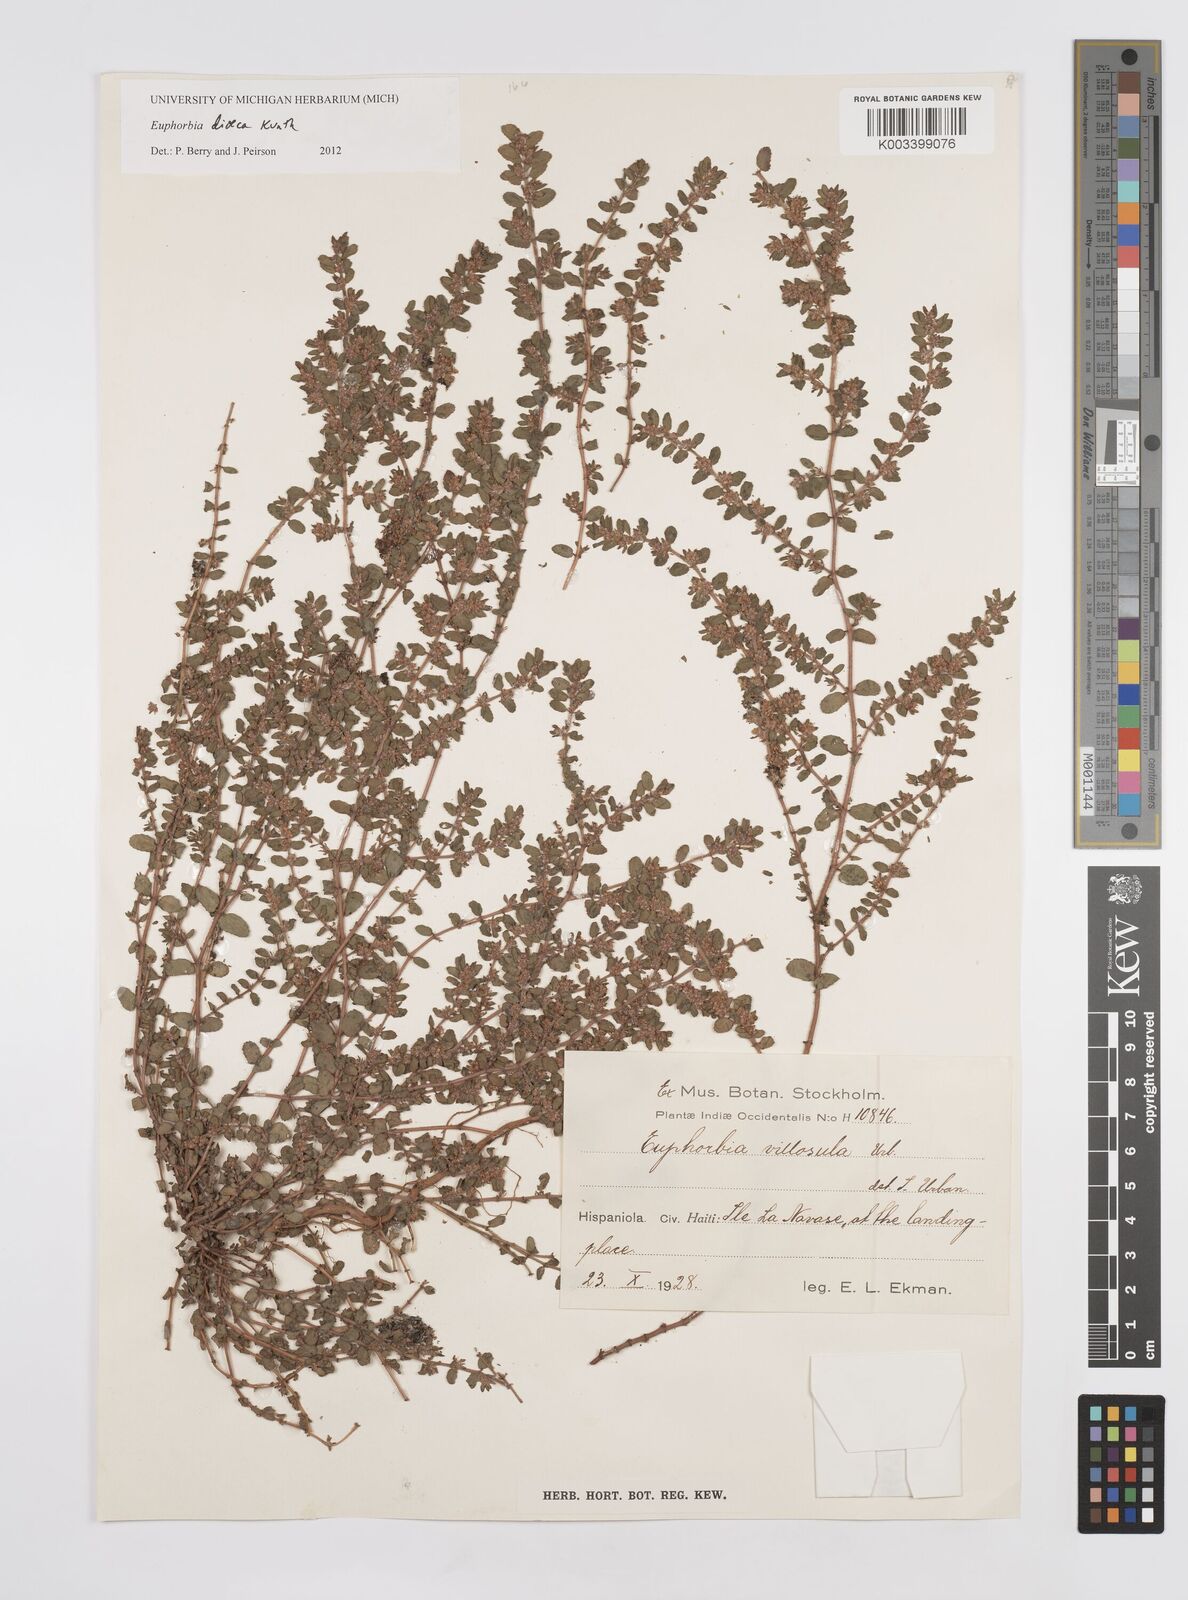 UNIVERSITY OF MICHIGAN HERBARIUM (MICH)
Euphorbia dioeca Kunth
Det.: P. Berry and J. Peirson 2012
ROYAL BOTANIC GARDENS KEW
K003399076
Ex Mus. Botan. Stockholm.
Plantæ Indiæ Occidentalis N:o H 10846.
Euphorbia villosula Urb.
det. I. Urban
Hispaniola. Civ. Haiti: Ile La Navase, at the landing-
place
23. X. 1928. leg. E. L. Ekman.
HERB. HORT. BOT. REG. KEW.
inches
centimeters
Density
Don Williams
M001144
Kew
Royal Botanic Gardens
copyright reserved
0 1 2 3 4 5 6 7 8 9 10
cm